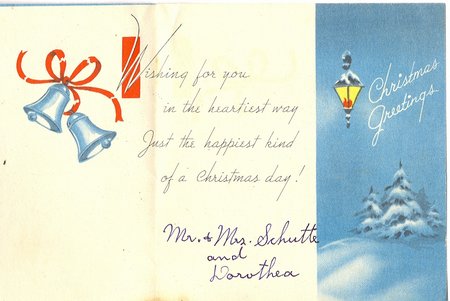 Wishing for you
in the heartiest way
Just the happiest kind
of a Christmas day!
Mr. & Mrs. Schutte
and
Dorothea
Christmas
Greetings